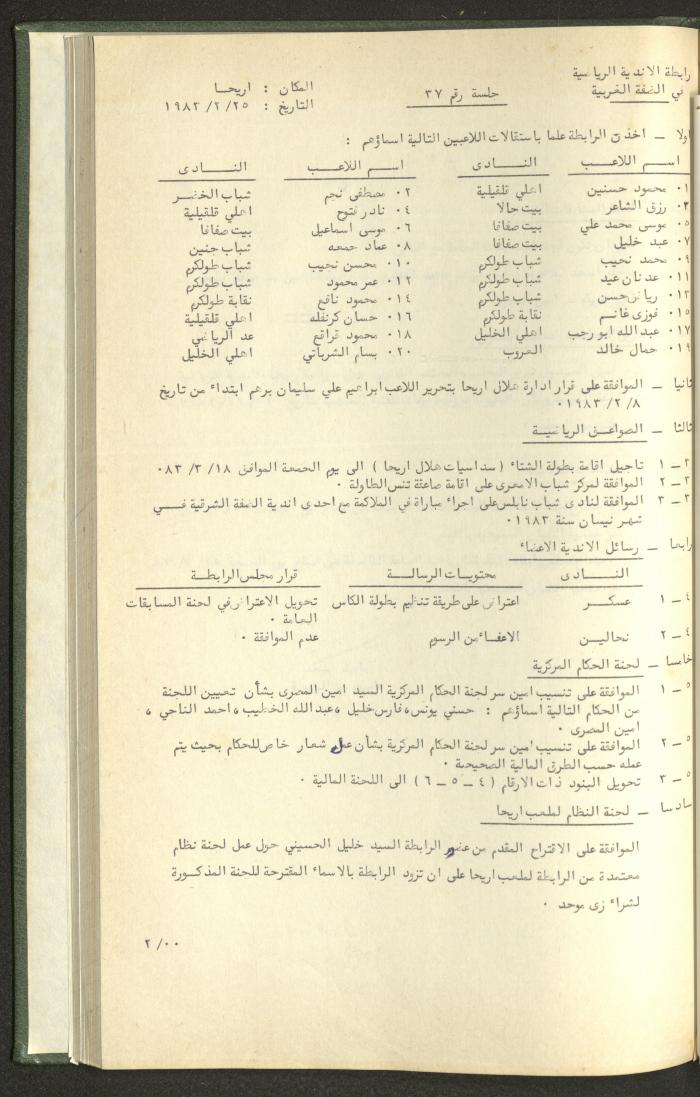 رابطة الاندية الرياضية
في الضفة الغربية
جلسة رقم ٣٧
المكان : اريحا
التاريخ : ٢٥/ ٢/ ١٩٨٣
اولا ــ اخذت الرابطة علما باستقالات اللاعبين التالية اسماؤهم :
اسم اللاعب النادى اسم اللاعب النادى
٠١ محمود حسنين اهلي قلقيلية ٠٢ مصطفى نجم شباب الخضر
٠٣ رزق الشاعر بيت جالا ٠٤ نادر فتوح اهلي قلقيلية
٠٥ موسى محمد علي بيت صفافا ٠٦ موسى اسماعيل بيت صفافا
٠٧ عبد خليل بيت صفافا ٠٨ عماد جمعه شباب جنين
٠٩ محمد نجيب شباب طولكرم ٠١٠ محسن نجيب شباب طولكرم
٠١١ عدنان عيد شباب طولكرم ٠١٢ عمر محمود شباب طولكرم
٠١٣ رياض حسن شباب طولكرم ٠١٤ محمود نافع نقابة طولكرم
٠١٥ فوزى غانم نقابة طولكرم ٠١٦ حسان كرنفله اهلي قلقيلية
٠١٧ عبدالله ابو رجب اهلي الخليل ٠١٨ محمود قراقع الرياضي
٠١٩ جمال خالد العروب ٠٢٠ بسام الشرباتي اهلي الخليل
ثانيا ــ الموافقة على قرار ادارة هلال اريحا بتحرير اللاعب ابراهيم علي سليمان برهم ابتداء من تاريخ
٨/ ٢/ ١٩٨٣٠
ثالثا ــ الصواعق الرياضية
٣ــ ١ تاجيل اقامة بطولة الشتاء ( سداسيات هلال اريحا ) الى يوم الجمعة الموافق ١٨/ ٣/ ٨٣٠
٣ــ ٢ الموافقة لمركز شباب الامعرى على اقامة صاعقة تنس الطاولة ٠
٣ــ ٣ الموافقة لنادى شباب نابلس على اجراء مباراة في الملاكمة مع احدى اندية الضفة الشرقية فــي
شهر نيسان سنة ١٩٨٣٠
رابعا ــ رسائل الاندية الاعضاء
النادى محتويات الرسالة قرار مجلس الرابطة
٤ــ ١ عسكر اعتراض على طريقة تنظيم بطولة الكاس تحويل الاعتراض في لجنة المسابقات
العامة ٠
٤ــ ٢ نحالين الاعفاء من الرسوم عدم الموافقة ٠
خامسا ــ لجنة الحكام المركزية
٥ــ ١ الموافقة على تنسيب امين سر لجنة الحكام المركزية السيد امين المصرى بشأن تعيين اللجنة
من الحكام التالية اسماؤهم : حسني يونس، فارس خليل ، عبدالله الخطيب ، احمد الناجي ،
امين المصرى ٠
٥ــ ٢ الموافقة على تنسيب امين سر لجنة الحكام المركزية بشأن عمل شعار خاص للحكام بحيث يتم
عمله حسب الطرق المالية الصحيحة ٠
٥ــ ٣ تحويل البنود ذات الارقام ( ٤ ــ ٥ ــ ٦ ) الى اللجنة المالية ٠
سادسا ــ لجنة النظام لملعب اريحا
الموافقة على الاقتراح المقدم من عضو الرابطة السيد خليل الحسيني حول عمل لجنة نظام
معتمدة من الرابطة لملعب اريحا على ان تزود الرابطة بالاسماء المقترحة للجنة المذكـورة
لشراء زى موحد ٠
٢/٠٠